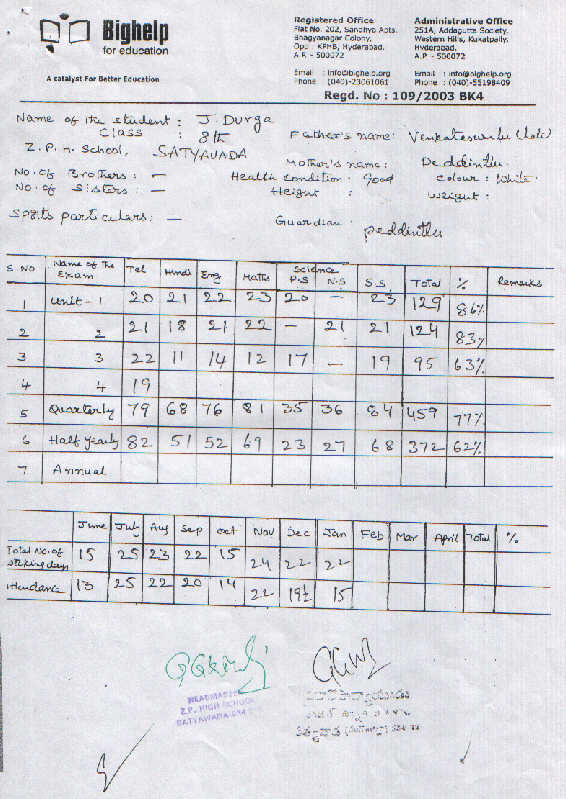 Bighelp
for education
A catalyst For Better Education
Registered Office
Flat No. 202, Sandhya Apts.
Bhagyanagar Colony,
Opp : KPHB, Hyderabad.
A.P. - 500072
Email : info@bighelp.org
Phone : (040)-23061061
Administrative Office
251A, Addagutta Society,
Western Hills, Kukatpally,
Hyderabad.
A.P - 500072
Email : info@bighelp.org
Phone : (040)-55198409
Regd. No : 109/2003 BK4
Name of the student : J. Durga
Class : 8th
Father's name: Venkateswarlu (late)
Z.P.H. School, SATYAVADA
Mother's name: Peddintlu
No. of Brothers : -
Health Condition : good
Colour : white
No. of Sisters : -
Height :
Weight :
Sports particulars : -
Guardian : peddintlu
S NO Name of the Exam Tel Hindi Eng Maths Science P.S N.S S.S. Total % Remarks
1 Unit - 1 20 21 22 23 20 - 23 129 86%
2 2 21 18 21 22 - 21 21 124 83%
3 3 22 11 14 12 17 - 19 95 63%
4 4 19
5 Quarterly 79 68 76 81 35 36 84 459 77%
6 Half yearly 82 51 52 69 23 27 68 372 62%
7 Annual
June July Aug Sep Oct Nov Dec Jan Feb Mar April Total %
Total No. of working days 15 25 23 22 15 24 22 22
Attendance 13 25 22 20 14 22 19½ 15
HEADMASTER
Z.P. HIGH SCHOOL
SATYAWADA-534